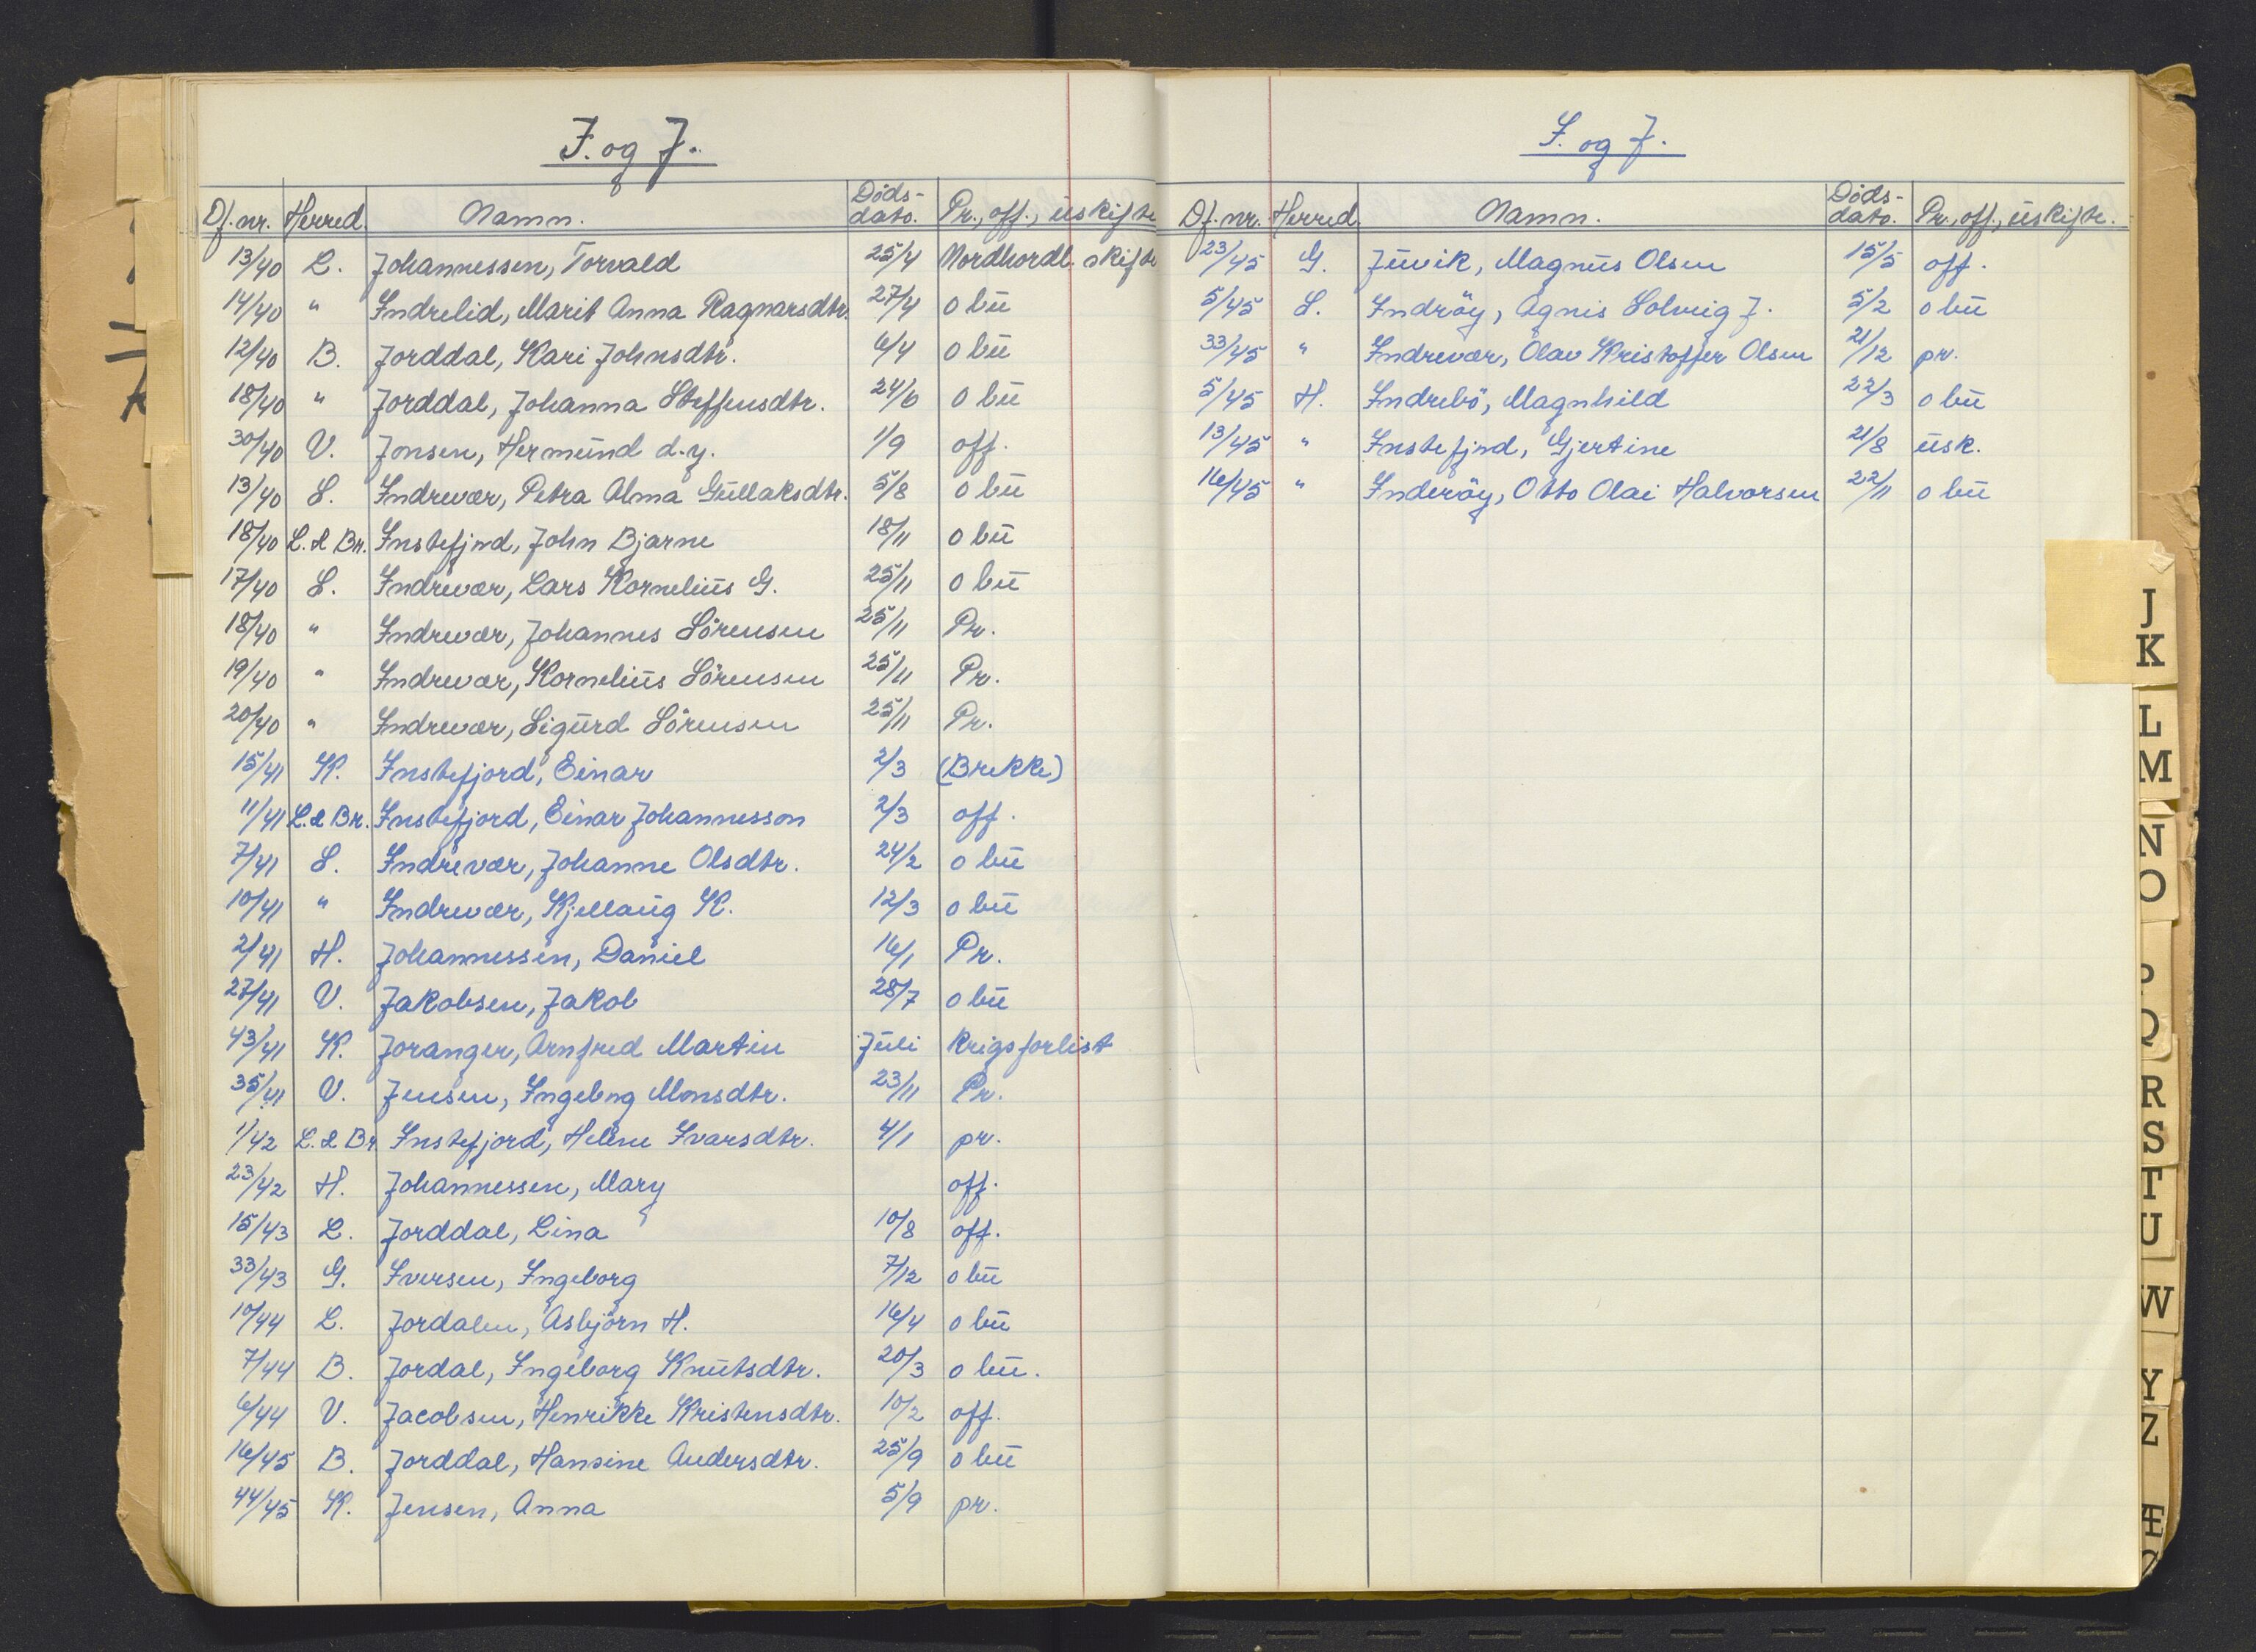 I. og J.
Df. nr. Herred. Namn. Døds-dato. Pr., off., uskifte
13/40 L. Johannessen, Torvald 25/4 Nordhordl. skifte
14/40 " Indrelid, Marit Anna Ragnarsdtr. 27/4 o bu
12/40 B. Jorddal, Kari Johnsdtr. 6/4 o bu
18/40 " Jorddal, Johanna Steffensdtr. 24/6 o bu
30/40 V. Jonsen, Hermund d.y. 1/9 off.
13/40 S. Indrevær, Petra Alma Gullaksdtr. 5/8 o bu
18/40 L. & Br. Instefjord, John Bjarne 18/11 o bu
17/40 S. Indrevær, Lars Kornelius G. 25/11 o bu
18/40 " Indrevær, Johannes Sørensen 25/11 Pr.
19/40 " Indrevær, Kornelius Sørensen 25/11 Pr.
20/40 " Indrevær, Sigurd Sørensen 25/11 Pr.
15/41 K. Instefjord, Einar 2/3 (Brekke)
11/41 L. & Br. Instefjord, Einar Johannesson 2/3 off.
7/41 S. Indrevær, Johanne Olsdtr. 24/2 o bu
10/41 " Indrevær, Kjellaug K. 12/3 o bu
2/41 H. Johannessen, Daniel 16/1 Pr.
27/41 V. Jakobsen, Jakob 28/7 o bu
43/41 K. Joranger, Arnfred Martin Juli krigsforlist
35/41 V. Jensen, Ingebrg Monsdtr. 23/11 Pr.
1/42 L. & Br Instefjord, Helene Ivarsdtr. 4/1 pr.
23/42 H. Johannessen, Mary off.
15/43 L. Jorddal, Lina 10/8 off.
33/43 G. Iversen, Ingeborg 7/12 o bu
10/44 L. Jordalen, Asbjørn H. 16/4 o bu
7/44 B. Jordal, Ingeborg Knutsdtr. 20/3 o bu.
6/44 V. Jacobsen, Henrikke Kristensdtr. 10/2 off.
16/45 B. Jorddal, Hansine Andersdtr. 25/9 o bu
44/45 K. Jensen, Anna 5/9 pr.
I. og J.
Df. nr. Herred. Namn. Døds-dato. Pr., off., uskifte.
23/45 G. Juvik, Magnus Olsen 15/5 off.
5/45 S. Indrøy, Agnis Solveig J. 5/2 o bu
33/45 " Indrevær, Olav Kristoffer Olsen 21/12 pr.
5/45 H. Indrebø, Magnhild 22/3 o bu
13/45 " Instefjord, Gjertine 21/8 usk.
16/45 " Inderøy, Otto Olai Halvorsen 22/11 o bu
J
K
L
M
N
O
P
Q
R
S
T
U
W
Y
Z
Æ